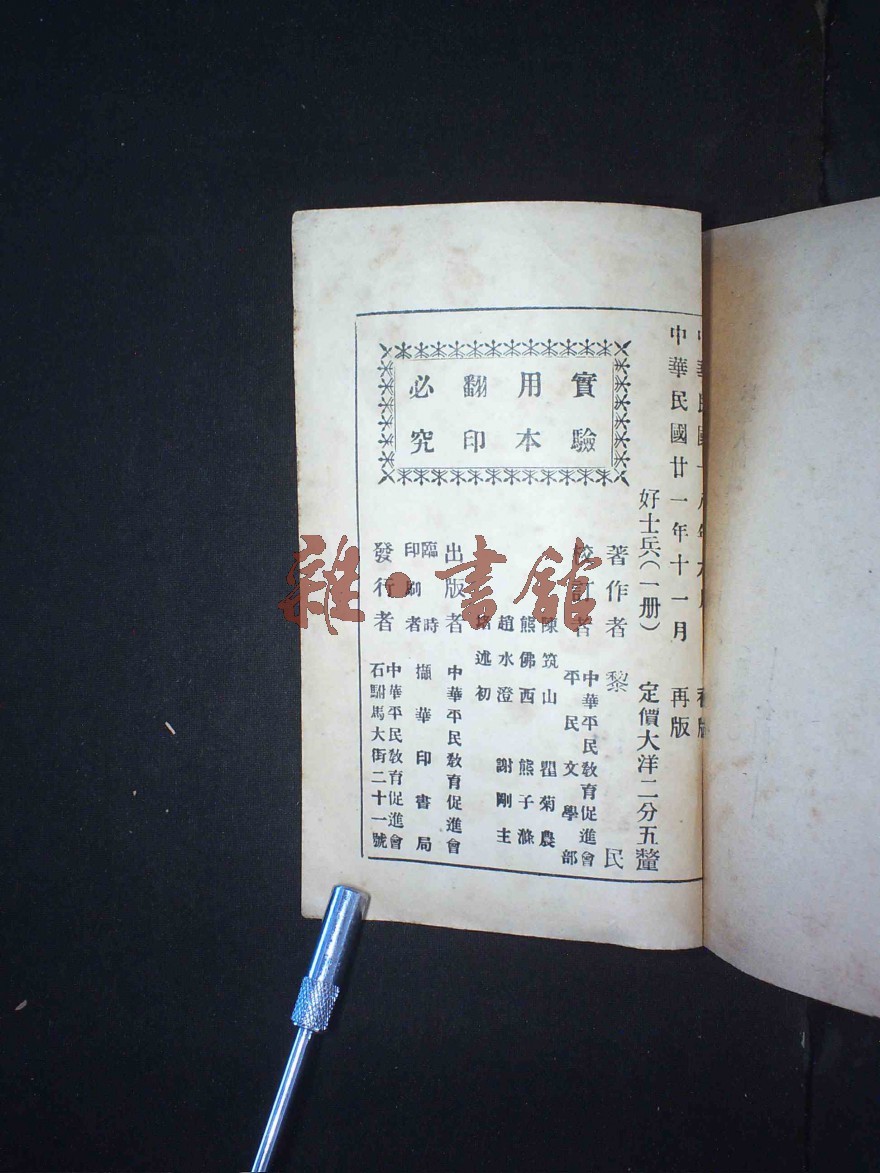 中華民國十八年六月 初版
中華民國廿一年十一月 再版
好士兵(一册) 定價大洋二分五釐
著作者 黎民
校訂者 中華平民教育促進會
平民文學部
陳筑山 瞿菊農
熊佛西 熊子滌
趙水澄 謝剛主
堵述初
出版者 中華平民教育促進會
臨時
印刷者 擷華印書局
發行者 中華平民教育促進會
石駙馬大街二十一號
實驗
用本
翻印
必究
雜·書館